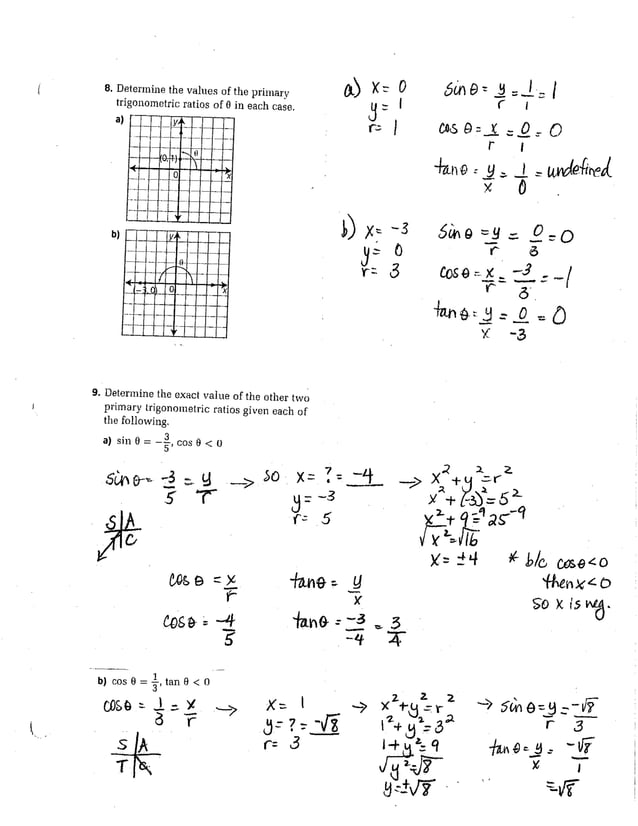 8. Determine the values of the primary
trigonometric ratios of θ in each case.
a)
y
(0, 1)
θ
0
x
b)
y
θ
(-3, 0)
0
x
a) x = 0
y = 1
r = 1
sin θ = y/r = 1/1 = 1
cos θ = x/r = 0/1 = 0
tan θ = y/x = 1/0 = undefined
b) x = -3
y = 0
r = 3
sin θ = y/r = 0/3 = 0
cos θ = x/r = -3/3 = -1
tan θ = y/x = 0/-3 = 0
9. Determine the exact value of the other two
primary trigonometric ratios given each of
the following.
a) sin θ = -3/5, cos θ < 0
sin θ = -3/5 = y/r → so x = ? = -4
y = -3
r = 5
S A
T C
→ x² + y² = r²
x² + (-3)² = 5²
x² + 9 = 25 -9 -9
√x² = √16
x = ±4 * b/c cos θ < 0
then x < 0
so x is neg.
cos θ = x/r
cos θ = -4/5
tan θ = y/x
tan θ = -3/-4 = 3/4
b) cos θ = 1/3, tan θ < 0
cos θ = 1/3 = x/r →
S A
T C
x = 1
y = ? = -√8
r = 3
→ x² + y² = r²
1² + y² = 3²
1 + y² = 9
√y² = √8
y = ±√8
→ sin θ = y/r = -√8/3
tan θ = y/x = -√8/1
= -√8